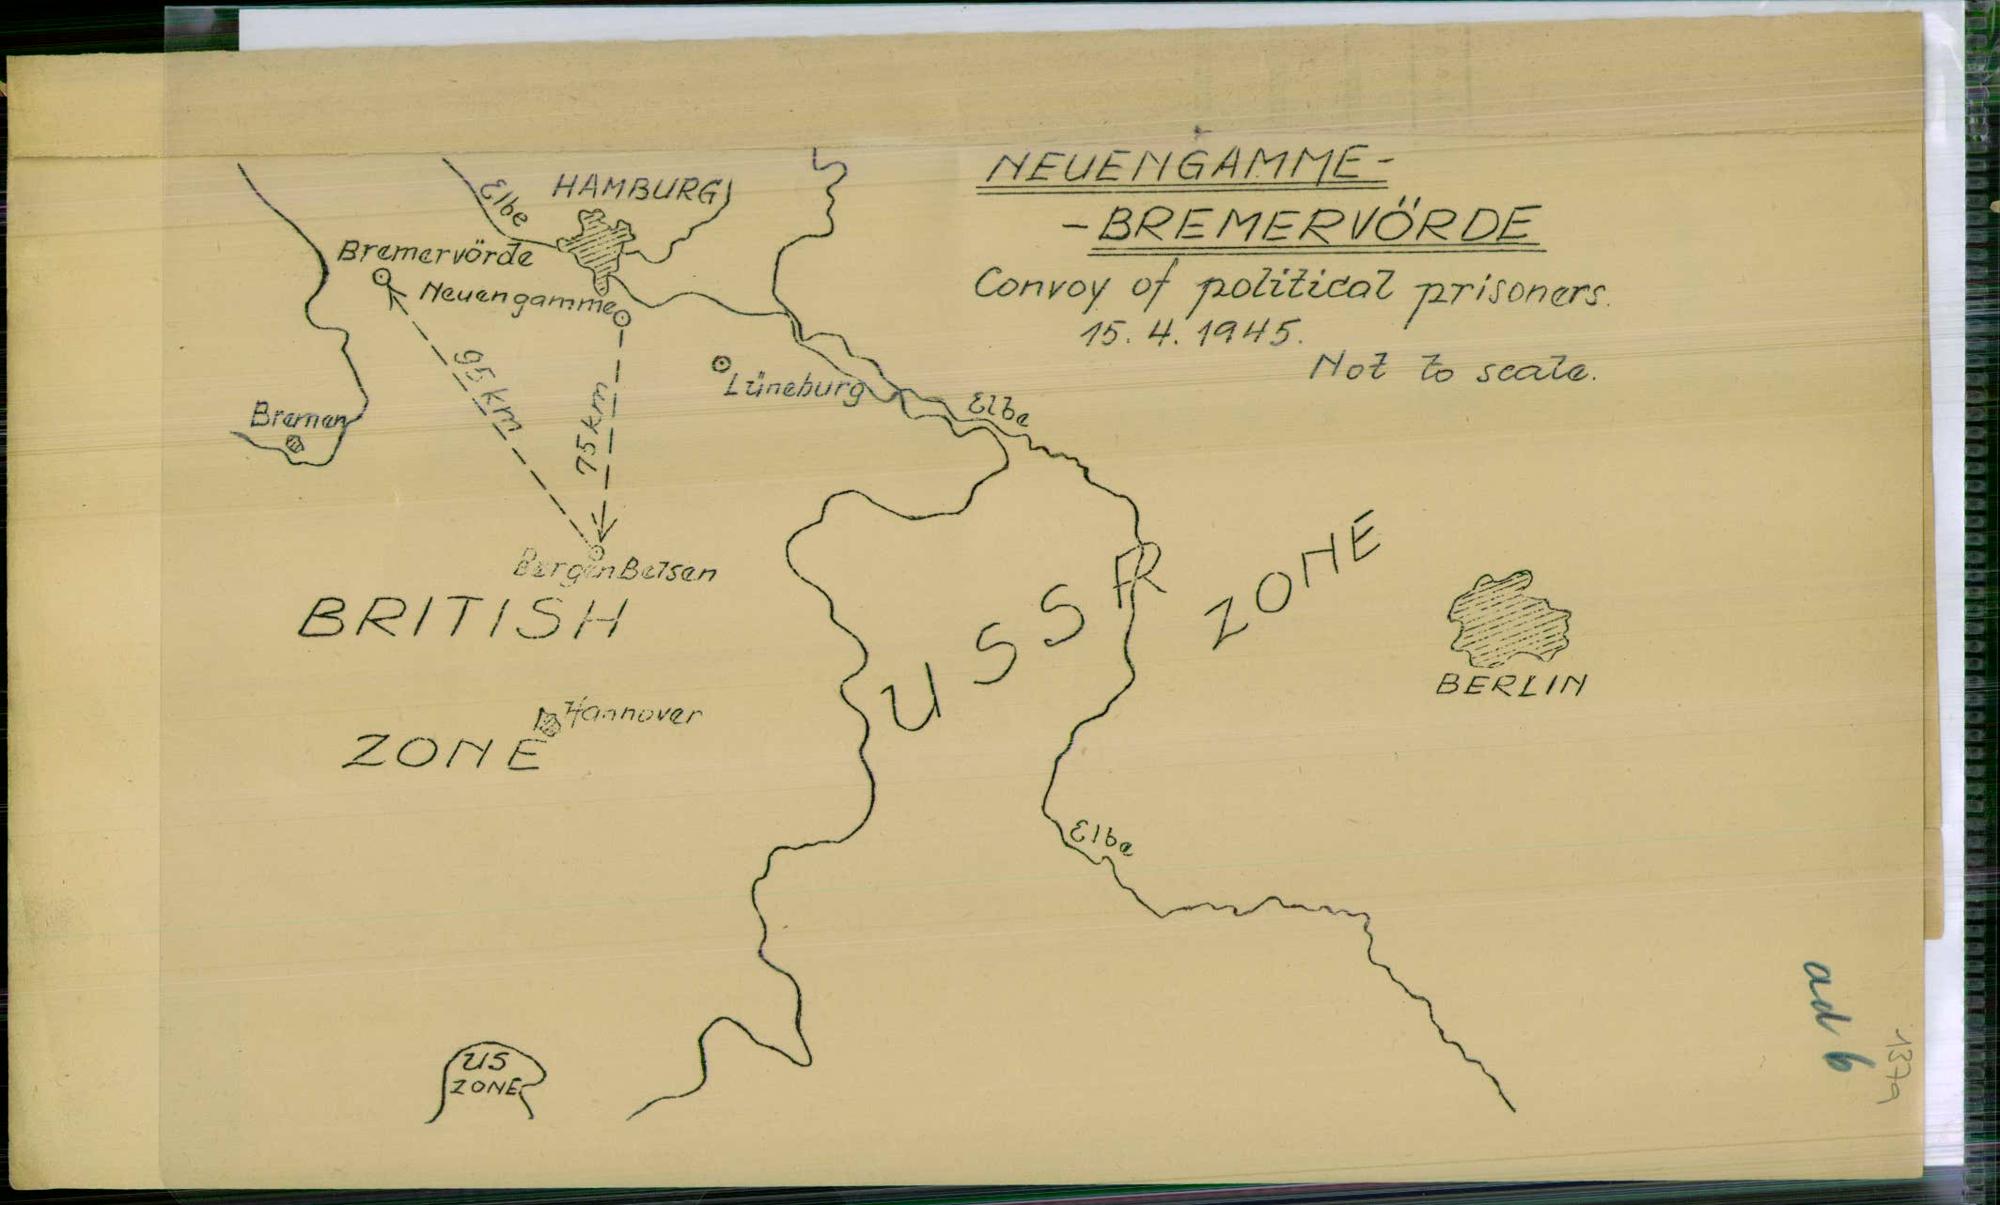 NEUENGAMME-
-BREMERVÖRDE
Convoy of political prisoners.
15. 4. 1945.
Not to scale.
Elbe
HAMBURG
Bremervörde
Neuengamme
95 km
75 km
Lüneburg
Bremen
Elbe
Bergen Belsen
BRITISH
ZONE
Hannover
USSR ZONE
BERLIN
Elbe
US
ZONE
ad b